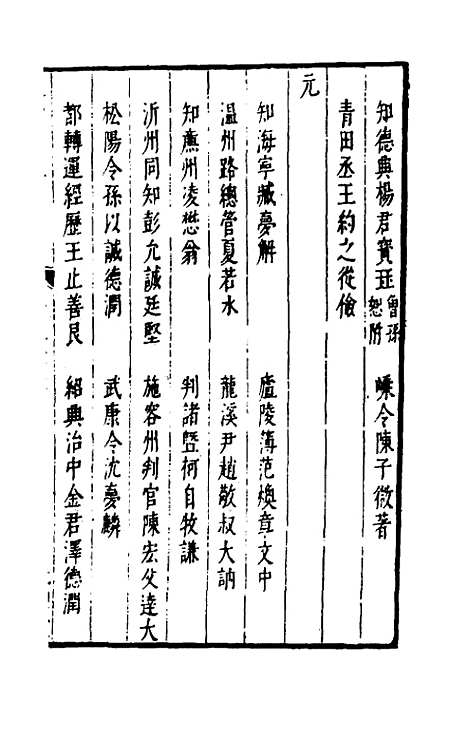 知德興楊君寶珏曾孫恕附　嵊令陳子微著
青田丞王約之從儉
元
知海寧臧夢解　廬陵簿范煥章文中
温州路總管夏若水　龍溪尹趙敬叔大訥
知薫州凌懋翁　判諸暨柯自牧謙
沂州同知彭允誠廷堅　施容州判官陳宏父達大
松陽令孫以誠德潤　武康令沈夢麟
都轉運經歷王止善艮　紹興治中金君澤德潤